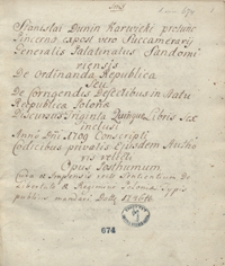 Stanislai Dunin Karwicki protunc
Pincernæ, exposit vero Succamerarij
Generalis Palatinatus Sandomi
riensis
De Ordinanda Republica
Seu
De Corrigendis Defectibus in Statu
Reipublicæ Polonæ
Discursus Triginta Quinque Libris Sex
inclusi
Anno Dni 1709 Conscripti
Codicibus privatis Ejusdem Autho
ris relicti
Opus Posthumum
Cura et Impensis
Libertate et Regimine Poloniæ Typis
publicis mandari
674